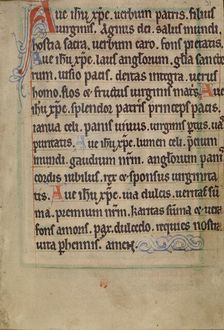 Aue ihu xpe. uerbum patris. filius
uirginis. Agnus dei. salus mundi
hostia sacra. uerbum caro. fons pietatis.
Aue ihu xpe. laus anglorum. gloria sanctor
rum. uisio pacis. deitas integra. uerus
homo. flos et fructus uirginis matris. Aue
ihu xpe. splendor patris princeps pacis.
ianua celi. panis uiuus. uirginis partus uas
puritatis. Aue ihu xpe. lumen celi. precium
mundi. gaudium nrm. anglorum panis
cordis iubilus. rex et sponsus uirginita
tis. Aue ihu xpe. uia dulcis. ueritas sum
ma. premium nrm. karitas suma et ue
fons amoris. pax. dulcedo. requies nostra
uita perhennis. amen.